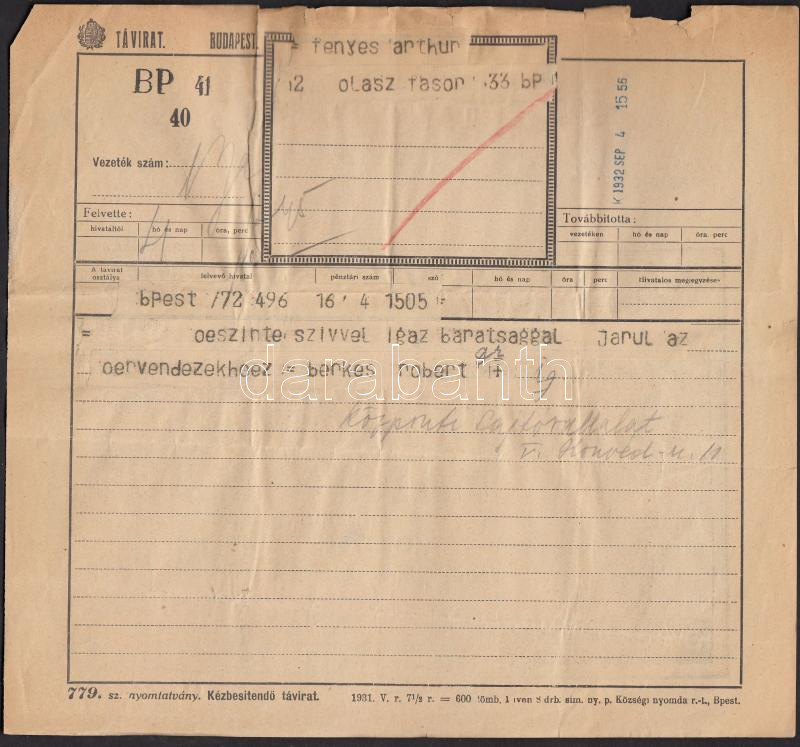 TÁVIRAT. BUDAPEST.
= fenyes arthur
olasz fasor 33 bp
BP 41
40
1932 SEP 4 15 56
Vezeték szám:
45
Felvette:
Továbbította:
hivataltól hó és nap óra, perc
vezetéken hó és nap óra. perc
A távirat osztálya felvevő hivatal pénztári szám szó hó és nap óra perc Hivatalos megjegyzések
bpest /72 496 16 4 1505 =
= oeszinte szivvel igaz baratsaggal jarul az
oervendezekhoez = berkes robert +
dr ig
Központi
V. Honvéd-u. 10
darabanth
779. sz. nyomtatvány. Kézbesítendő távirat. 1931. V. r. 7½ r. = 600 tömb, 1 íven 8 drb. sim. ny. p. Községi nyomda r.-t., Bpest.